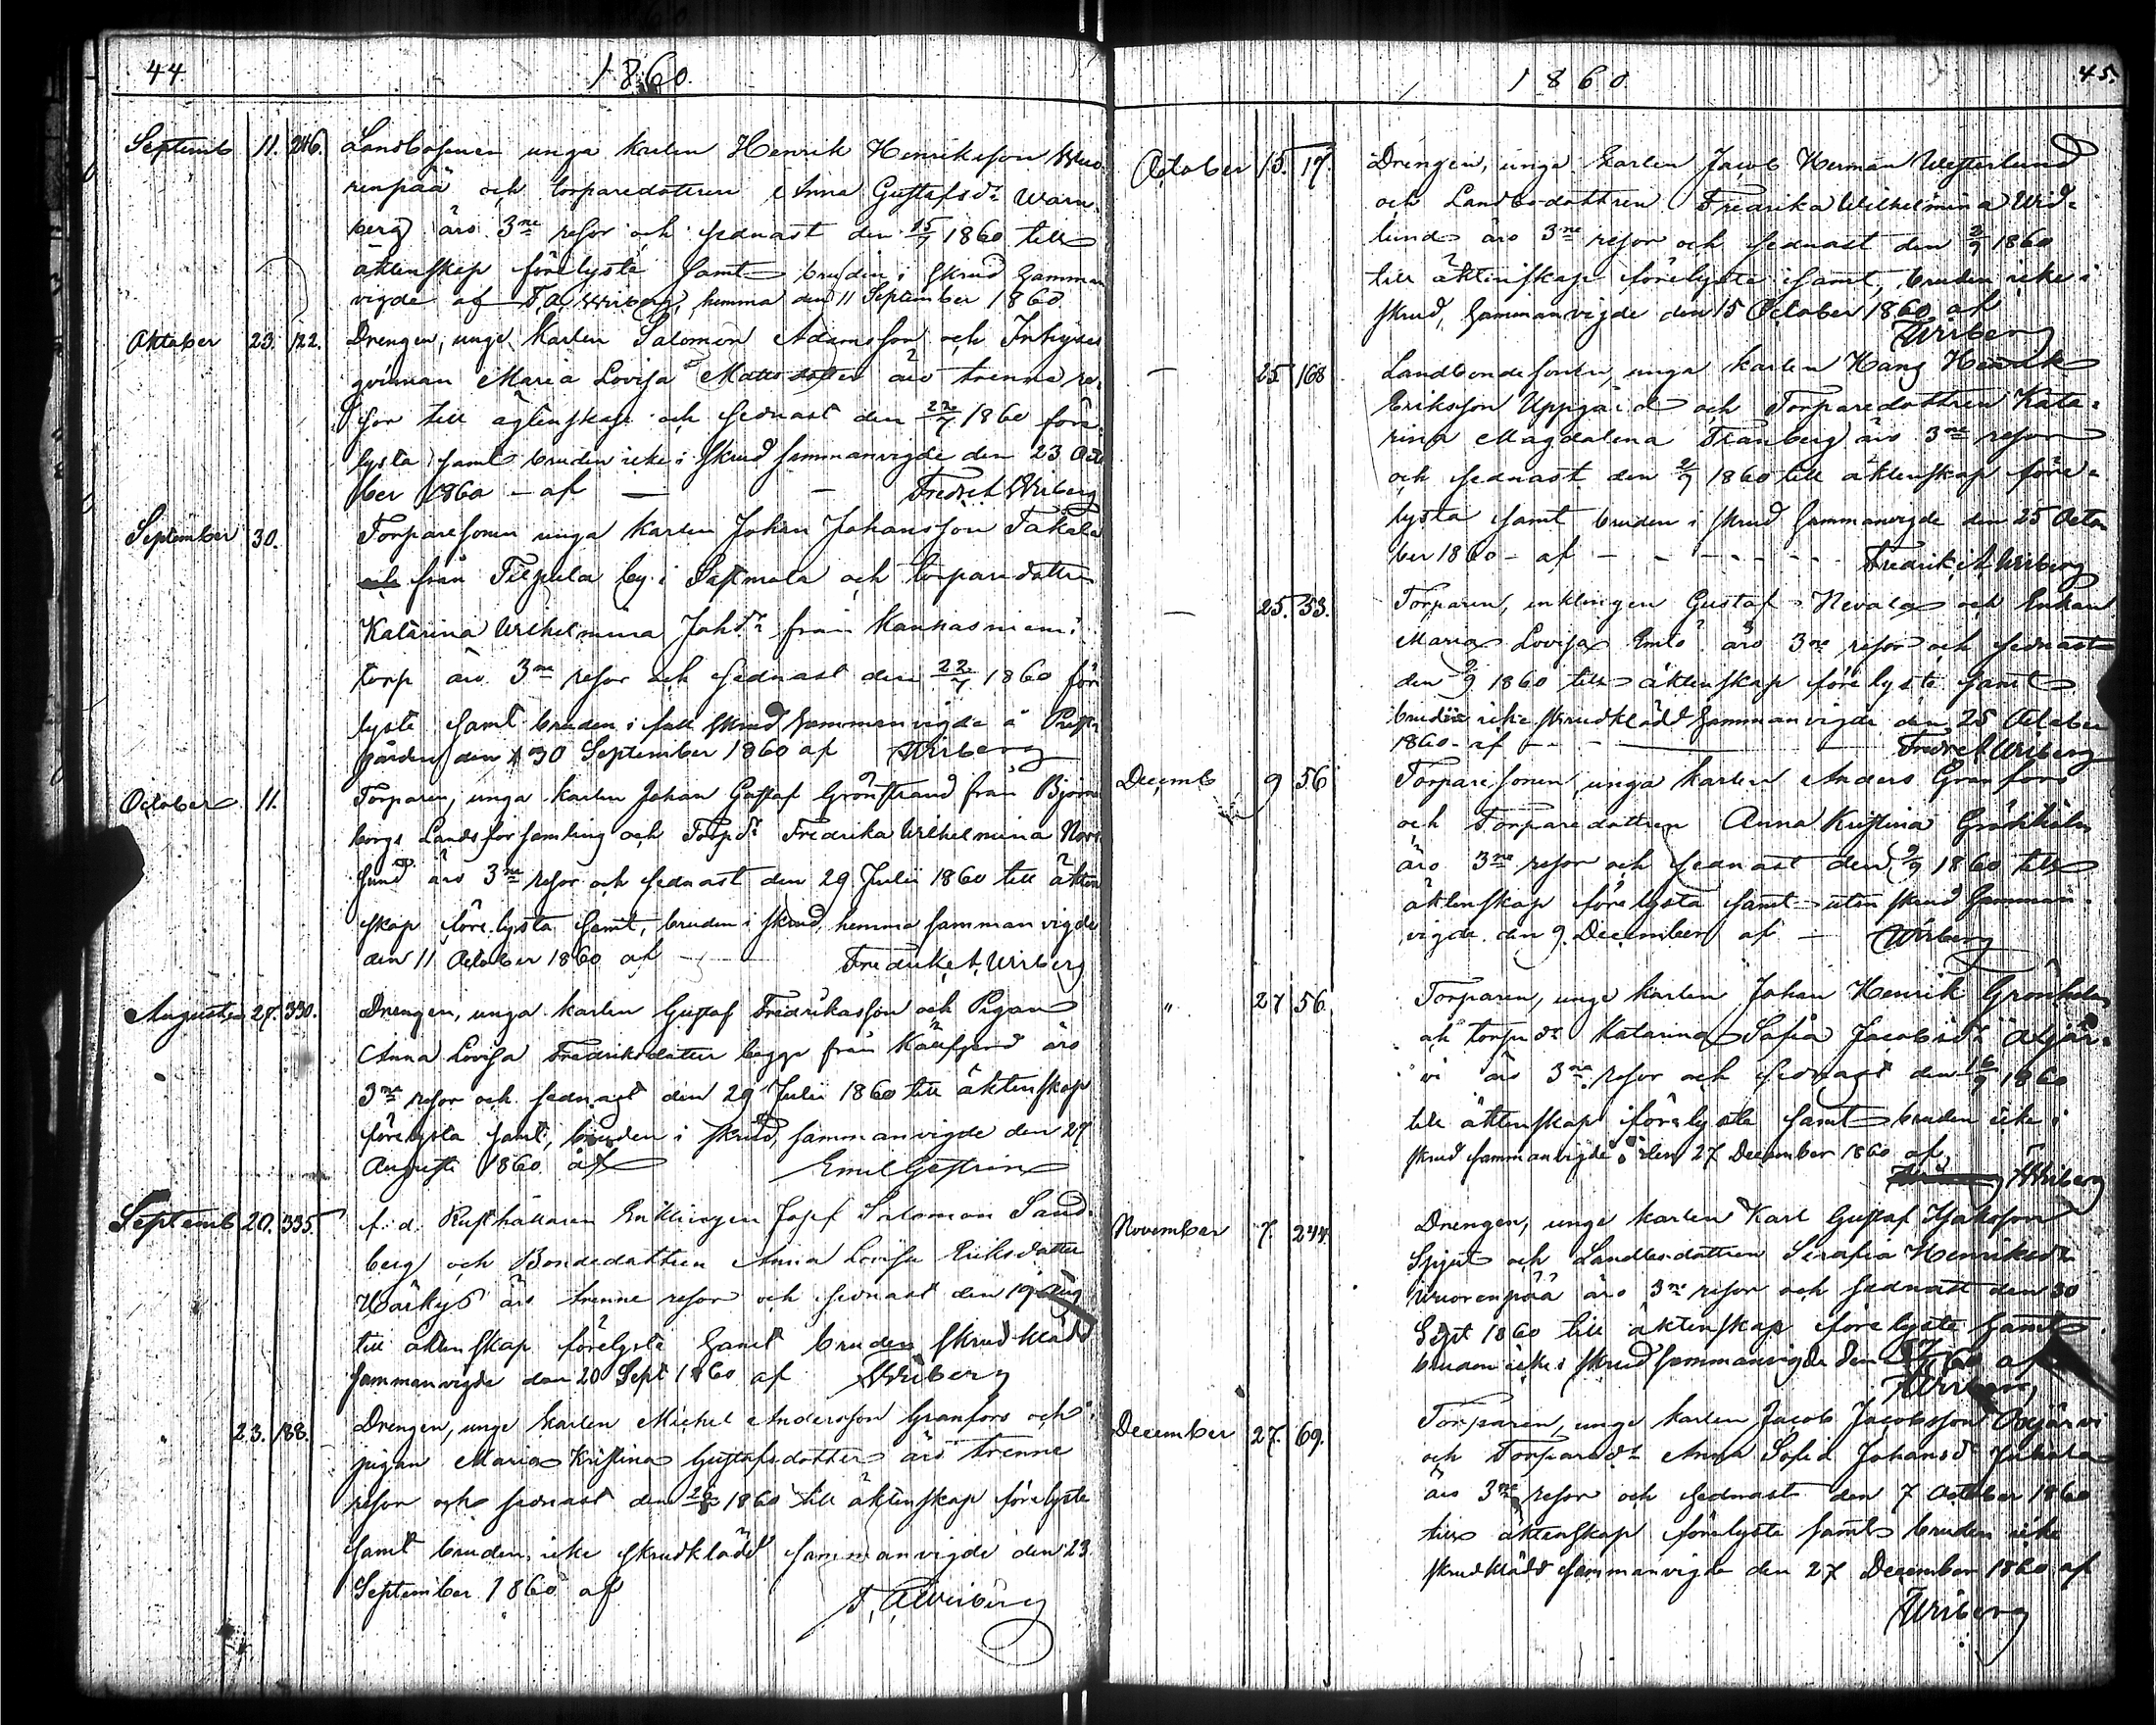 44
1860.
Septemb 11. 246. Landbosonen unga karlen Henrik Henriksson Wuo-
renpää och torparedottren Anna Gustafsdr Warn-
berg äro 3ne resor och sednast den 15/7 1860 till
äktenskap förelysta samt bruden i skrud samman
vigde af F. A. Wriberg, hemma den 11 September 1860
Oktober 23. 122. Drengen, unge karlen Salomon Adamsson och Inhyses
qvinnan Maria Lovisa Mattsdotter äro trenne re-
sor till äktenskap och sednast den 22/7 1860 före-
lysta samt bruden icke i skrud sammanvigde den 23 Octo
ber 1860 – af — – Fredrik Wriberg
September 30. Torparesonen unga karlen Johan Johansson Takala
från by i Sastmola och torparedottren
Katarina Wilhelmina Johdr från Kankasniemi
torp äro 3ne resor och sednast den 22/7 1860 före
lyste samt bruden i full skrud sammanvigde å Prest-
gården den 30 September 1860 af AWriberg
October 11. Torparen, unga karlen Johan Gustaf Grönstrand från Björne
borgs Landsförsamling och Torpdr Fredrika Wilhelmina Nor
lund äro 3ne resor och sednast den 29 Julii 1860 till äkten
skap förelysta samt, bruden i skrud, hemma sammanvigde
den 11 October 1860 af – Fredrik A. Wriberg
Augusti 27. 330. Drengen, unga karlen Gustaf Fredriksson och Pigan
Anna Lovisa Fredriksdotter begge från äro
3ne resor och sednast den 29 Julii 1860 till äktenskap
förelysta samt, bruden i skrud, sammanvigde den 27
Augusti 1860 af Emil Gestrin
Septemb 20. 335. f. d. Rusthållaren Enklingen Josef Salomon Sand-
berg och Bondedottren Anna Lovisa Eriksdotter
äro trenne resor och sednast den 19 Aug
till äktenskap förelysta samt bruden skrudklädd
sammanvigde den 20 Sept 1860 af AWriberg
" 23. 188. Drengen, unge karlen Michel Andersson Granfors och
pigan Maria Kristina Gustafsdotter äro trenne
resor och sednast den 26/8 1860 till äktenskap förelyste
samt bruden icke skrudklädd sammanvigde den 23
September 1860 af
F. A. Wriberg
1860
45.
October 15. 17. Drengen, unga karlen Jacob Herman Westerlund
och Landbodottren Fredrika Wilhelmina Wid-
lund äro 3ne resor och sednast den 2/9 1860
till äktenskap förelysta samt, bruden icke i
skrud, sammanvigde den 15 October 1860 af
AWriberg
— 25. 168 Landbondesonen, unga karlen Hans Henrik
Eriksson Uppgård och Torparedottren Kata-
rina Magdalena Tranberg äro 3ne resor
och sednast den 2/9 1860 till äktenskap före-
lysta samt bruden i skrud sammanvigde den 25 Octo
ber 1860 – af – – – – – Fredrik A Wriberg
— 25. 53. Torparen, enklingen Gustaf Nevala och Enkan
Maria Lovisa äro 3ne resor och sednast
den 9 1860 till äktenskap förelyste samt
bruden icke skrudklädd sammanvigde den 25 October
1860 – af – – — Fredrik Wriberg
Decemb 9 56 Torparesonen, unga karlen Anders Granfors
och Torparedottren Anna Kristina Grönholm
äro 3ne resor och sednast den 9/9 1860 till
äktenskap förelysta samt utan skrud samman-
vigde den 9 December af — AWriberg
" 27 56. Torparen, unge karlen Johan Henrik Grönholm
och torpdr Katarina Sofia Jacobsdr Axjär-
vi äro 3ne resor och sednast den 16/9 1860
till äktenskap förelyste samt bruden icke i
skrud sammanvigde den 27 December 1860 af
AWriberg
November 7. 244. Drengen, unge karlen Karl Gustaf Isaksson
och Landbodottren Serafia Henriksdr
Wuorenpää äro 3ne resor och sednast den 30
Sept 1860 till äktenskap förelyste samt
bruden icke i skrud sammanvigde den 7/11 60 af
AWriberg
December 27. 69. Torparen, unge karlen Jacob Jacobsson Axjärvi
och Torparedr Anna Sofia Johansdr
äro 3ne resor och sednast den 7 October 1860
till äktenskap förelyste samt bruden icke
skrudklädd sammanvigde den 27 December 1860 af
AWriberg